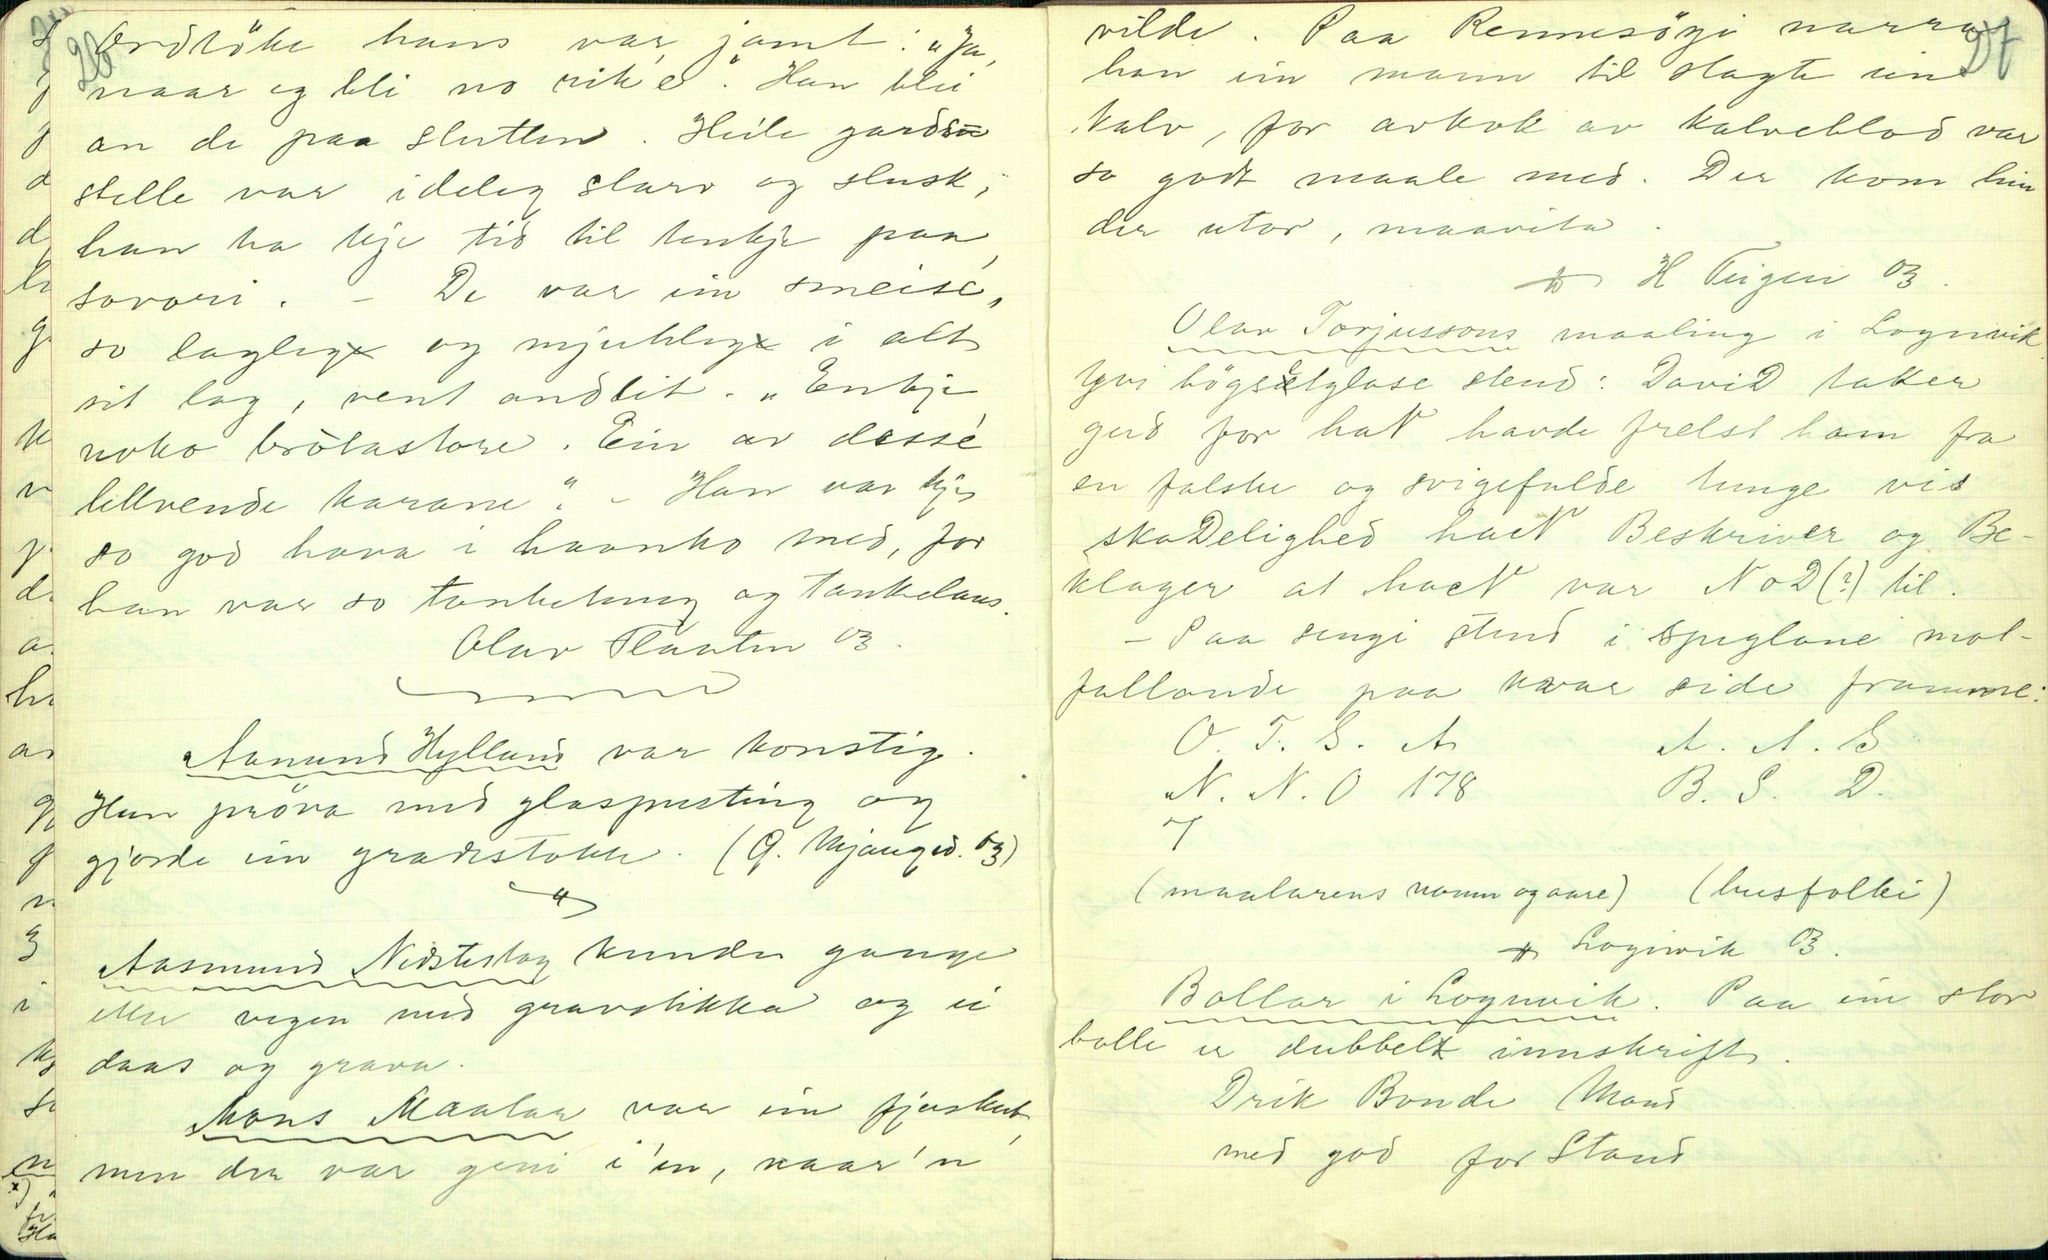 26
Ordtöke hans var jamt: "Ja,
naar eg bli no rik'e". Han blei
an de paa slutten. Heile gards=
stelle var ideleg slarv og slusk;
han ha kje tid til tenkje paa
sovori. – De var ein smeise,
so lagleg og mjukleg i alt
sit lag, vent andlit. "Enkje
noko brötastore. Ein av desse
lettvende karane". – Han var kje
so god hava i haanko med, for
han var so tanketung og tankelaus.
Olav Flaaten 03.
Aanund Hylland var konstig.
Han pröva med glaspusting og
gjorde ein gradestokk. (G. Kjaaged. 03)
"
Aasmund Nedsteslag kunde gange
etter vegen med gravstikka og ei
daas og grava.
Mons Maalar var ein fjuskut,
men der var geni i 'en, naar 'n
27
vilde. Paa Rennesögi narra
han ein mann til slagte ein
kalv, for avkok av kalveblod var
so godt maale med. Der kom lein
der utor, maavita.
H Teigen 03.
Olav Torjussons maaling i Lognvik
Yvi högsetglase stend: DaviD takker
gud for haN havde frelst ham fra
en falske og svigefulde tunge vis
skaDelighed haeN Beskriver og Be-
klager at haeN var NoD(?) til.
– Paa sengi stend i speglane mot-
fallande paa kvar side framme:
O. T. S. A A. A. S
N. N. O 178 B. S. D.
7
(maalarens namn og aare) (husfolki)
Lognvik 03.
Bollar i Lognvik. Paa ein stor
bolle er dubbelt innskrift.
Drik Bonde Mand
med god for Stand